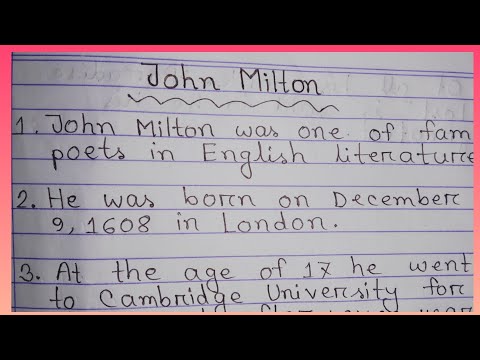 John Milton
1. John Milton was one of fam
poets in English literature
2. He was born on December
9, 1608 in London.
3. At the age of 17 he went
to Cambridge University for